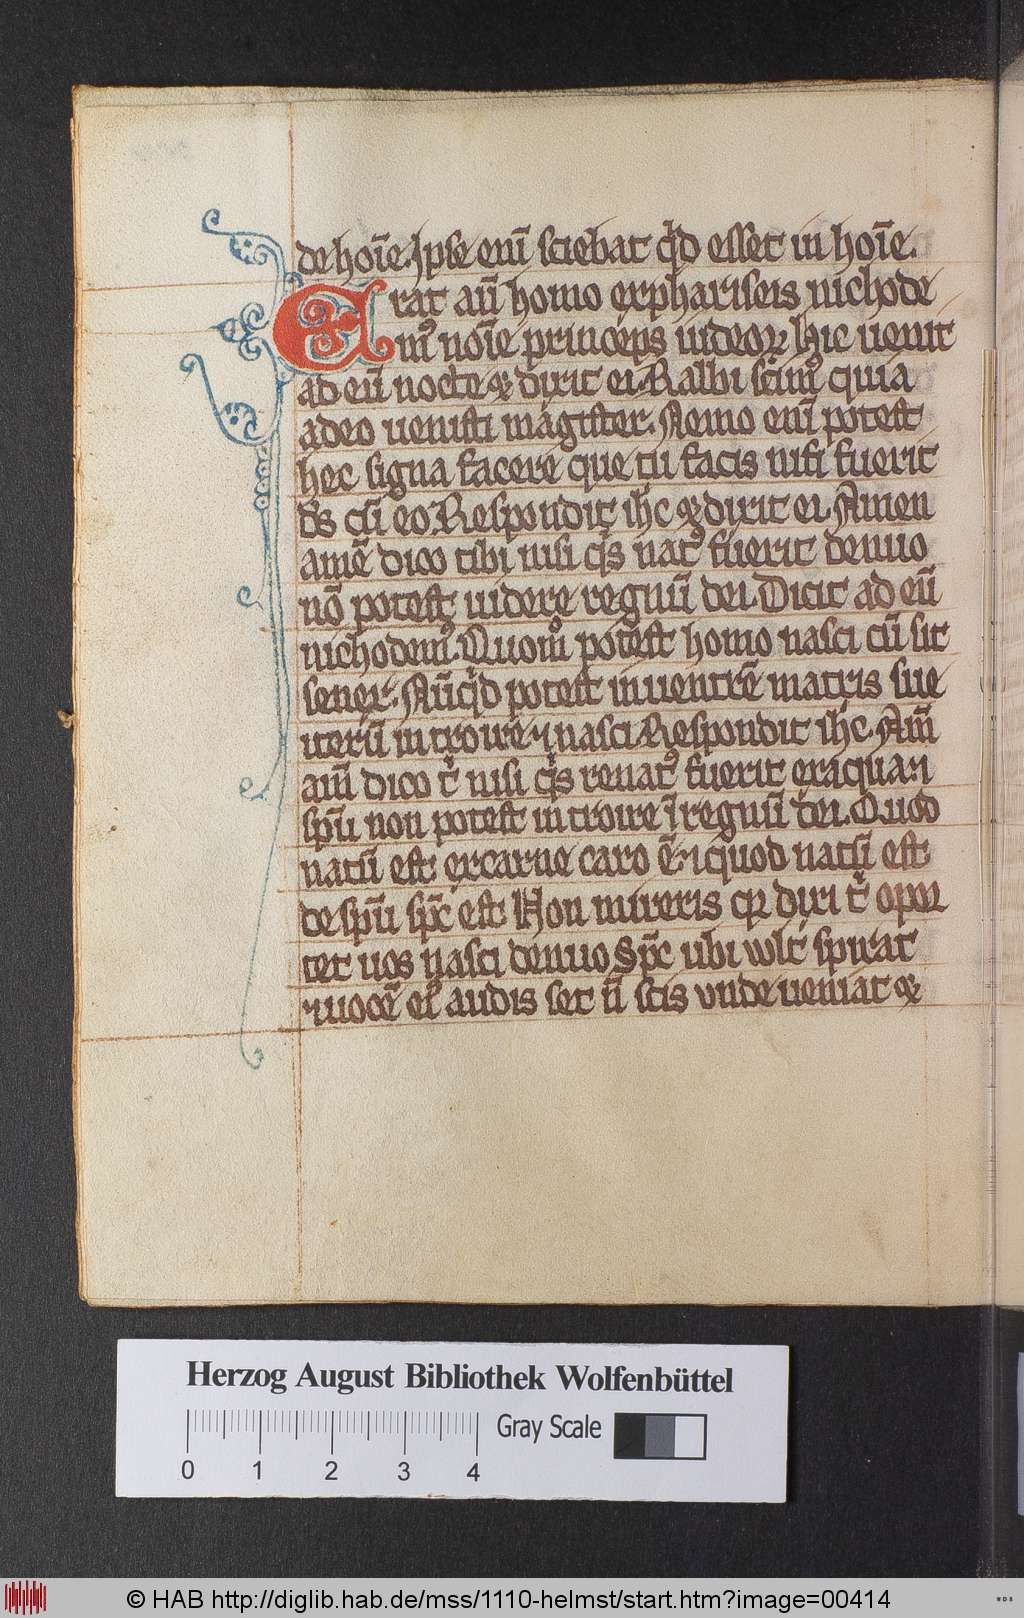 de hoīe. Ipse enī sciebat qͥd esset in hoīe.
Erat aū homo ex phariseis nichode
mꝰ noīe princeps iudeoꝝ hic uenit
ad eū nocte ⁊ dixit ei. Rabbi scimꝰ quia
a deo uenisti magister. Nemo enī potest
hec signa facere que tu facis nisi fuerit
ds̄ cū eo Respondit ih̄c ⁊ dixit ei. Amen
amē dico tibi nisi qͥs natꝰ fuerit denuo
nō potest uidere regnū dei. Dicit ad eū
nichodemꝰ. Quomō potest homo nasci cū sit
senex. Nūqͥd potest in uentrē matris sue
iterū introire ⁊ nasci Respondit ih̄c. Am̄
am̄ dico tͥ nisi qͥs renatꝰ fuerit ex aqua ⁊
sp̄u non potest introire ī regnū dei. Quod
natū est ex carne caro ē. ⁊ quod natū est
de sp̄u sp̄c est Non mireris qꝛ dixi tͥ opor
tet uos nasci denuo Sp̄c ubi wlt spirat
⁊ uocē eiꝰ audis set n̄ scis vnde ueniat ⁊
Herzog August Bibliothek Wolfenbüttel
Gray Scale
0 1 2 3 4
© HAB http://diglib.hab.de/mss/1110-helmst/start.htm?image=00414